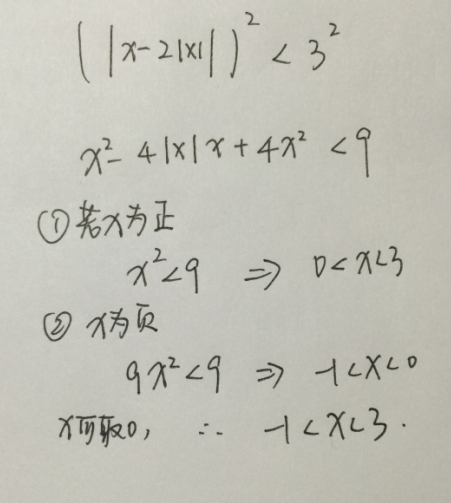 (|x-2|x||)² < 3²
x²- 4|x|x + 4x² < 9
① 若x为正
x² < 9 ⇒ 0 < x < 3
② x为页
9x² < 9 ⇒ -1 < x < 0
x可取0, ∴ -1 < x < 3.